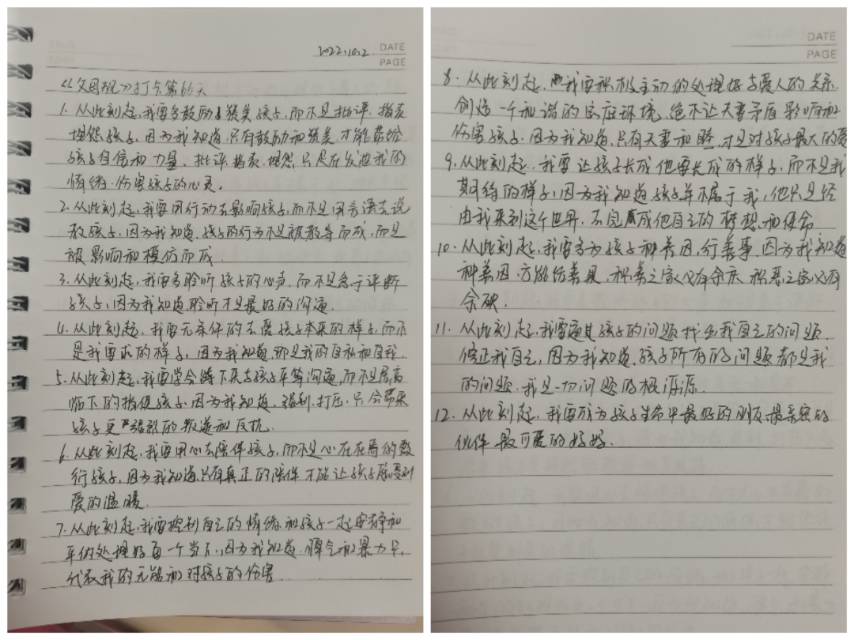 2022.10.2
DATE
PAGE
《父母规》打卡第66天
1. 从此刻起，我要多鼓励多赞美孩子，而不是批评、指责
埋怨孩子，因为我知道，只有鼓励和赞美才能带给
孩子自信和力量，批评、指责、埋怨只是在发泄我的
情绪，伤害孩子的心灵。
2. 从此刻起，我要用行动去影响孩子，而不是用言语去说
教孩子，因为我知道，孩子的行为不是被教导而成，而是
被影响和模仿而成
3. 从此刻起，我要多聆听孩子的心声，而不是急于评断
孩子，因为我知道聆听才是最好的沟通。
4. 从此刻起，我要无条件的去爱孩子本来的样子，而不
是我要求的样子，因为我知道，那是我的自私和自我。
5. 从此刻起，我要学会蹲下来与孩子平等沟通，而不是居高
临下的指使孩子，因为我知道，强制、打压，只会带来
孩子更严强烈的叛逆和反抗。
6. 从此刻起，我要用心去陪伴孩子，而不是心不在焉的敷
衍孩子，因为我知道只有真正的陪伴才能让孩子感受到
爱的温暖。
7. 从此刻起，我要控制自己的情绪，和孩子一起安静和
平的处理好每一个当下，因为我知道，脾气和暴力只
代表我的无能和对孩子的伤害
DATE
PAGE
8. 从此刻起，我要积极主动的处理好与爱人的关系，
创造一个和谐的家庭环境，绝不让夫妻矛盾影响和
伤害孩子，因为我知道，只有夫妻和睦，才是对孩子最大的爱
9. 从此刻起，我要让孩子长成他要长成的样子，而不是我
期待的样子，因为我知道孩子并不属于我，他只是经
由我来到这个世界，去完成他自己的梦想和使命
10. 从此刻起，我要多为孩子种善因，行善事，因为我知道
种善因，方能结善果，积善之家必有余庆，积恶之家必有
余殃。
11. 从此刻起，我要通过孩子的问题找出我自己的问题，
修正我自己，因为我知道，孩子所有的问题都是我
的问题，我是一切问题的根源
12. 从此刻起，我要成为孩子生命中最好的朋友，最亲密的
伙伴，最可爱的妈妈。